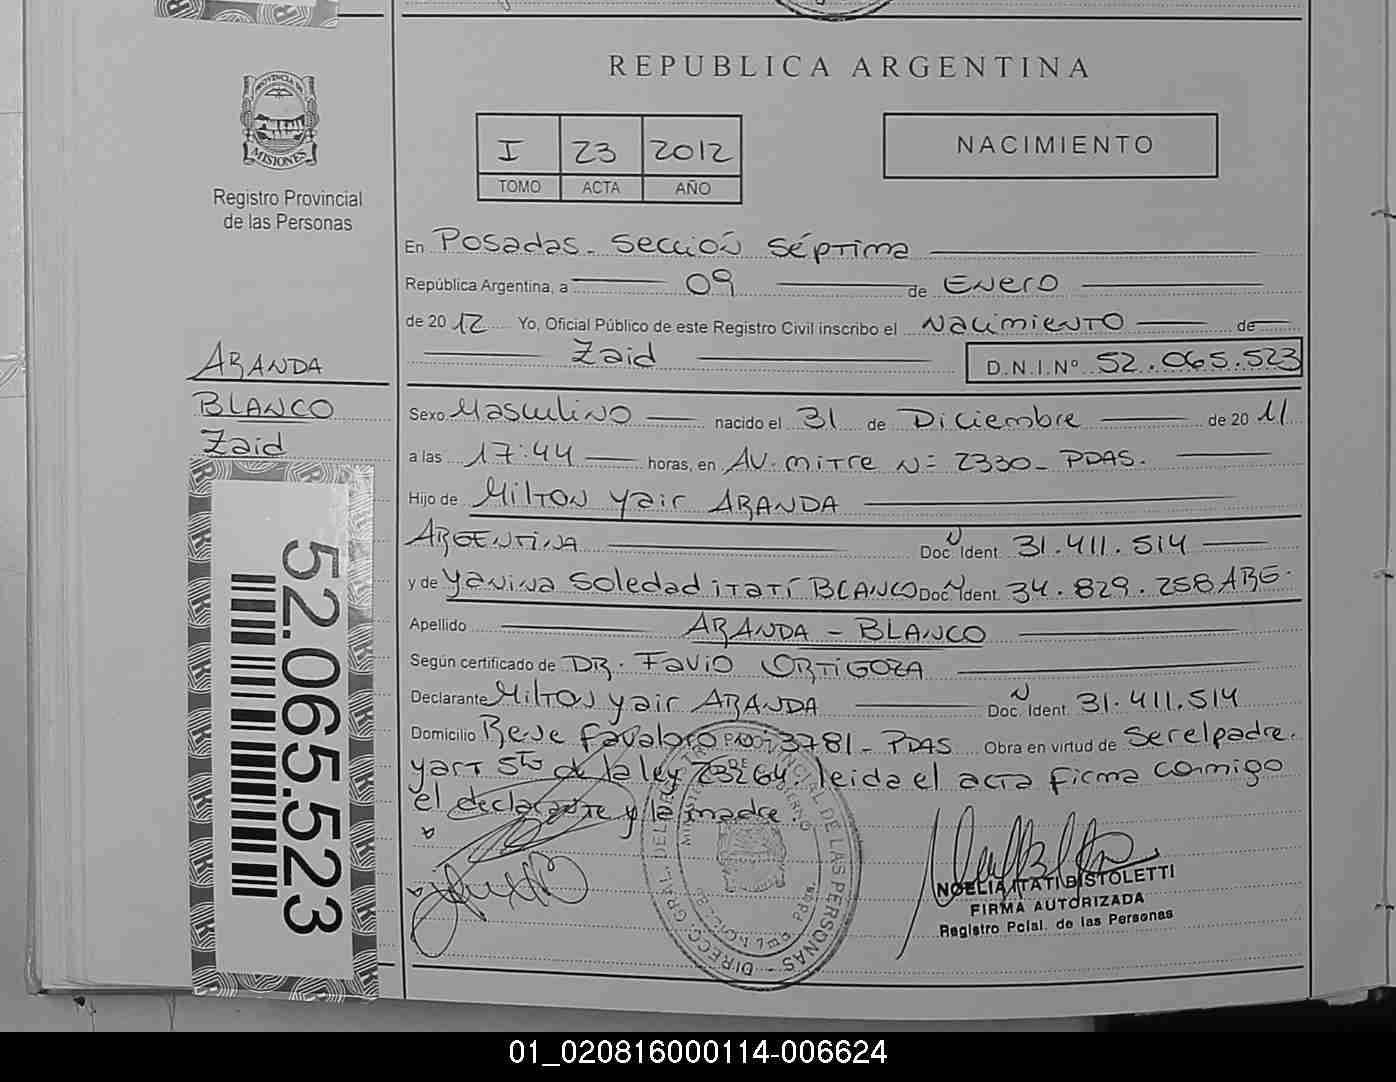 REPUBLICA ARGENTINA
PROVINCIA DE
MISIONES
Registro Provincial
de las Personas
I 23 2012
TOMO ACTA AÑO
NACIMIENTO
En Posadas - Sección Séptima
República Argentina, a 09 de Enero
de 2012 Yo, Oficial Público de este Registro Civil inscribo el Nacimiento de
Zaid D.N.I.Nº 52.065.523
ARANDA
BLANCO
Zaid
Sexo Masculino nacido el 31 de Diciembre de 2011
a las 17:44 horas, en AV. mitre N= 2330 - PDAS.
Hijo de Milton yair ARANDA
ARGENTINA Doc. Ident. 31.411.514
y de yanina Soledad itatí BLANCO Doc. Ident. 34.829.258 ARG.
Apellido ARANDA - BLANCO
Según certificado de DR. Favio ORTIGOZA
Declarante Milton yair ARANDA Doc. Ident. 31.411.514
Domicilio Rene favaloro 3781 - PDAS Obra en virtud de Ser el padre.
y art 5to de la ley 23264. leida el acta firma conmigo
el declarante y la madre.
52.065.523
DIRECC. GRAL. DEL REG. PROVINCIAL DE LAS PERSONAS
NOELIA ITATI BISTOLETTI
FIRMA AUTORIZADA
Registro Pcial. de las Personas
01_020816000114-006624